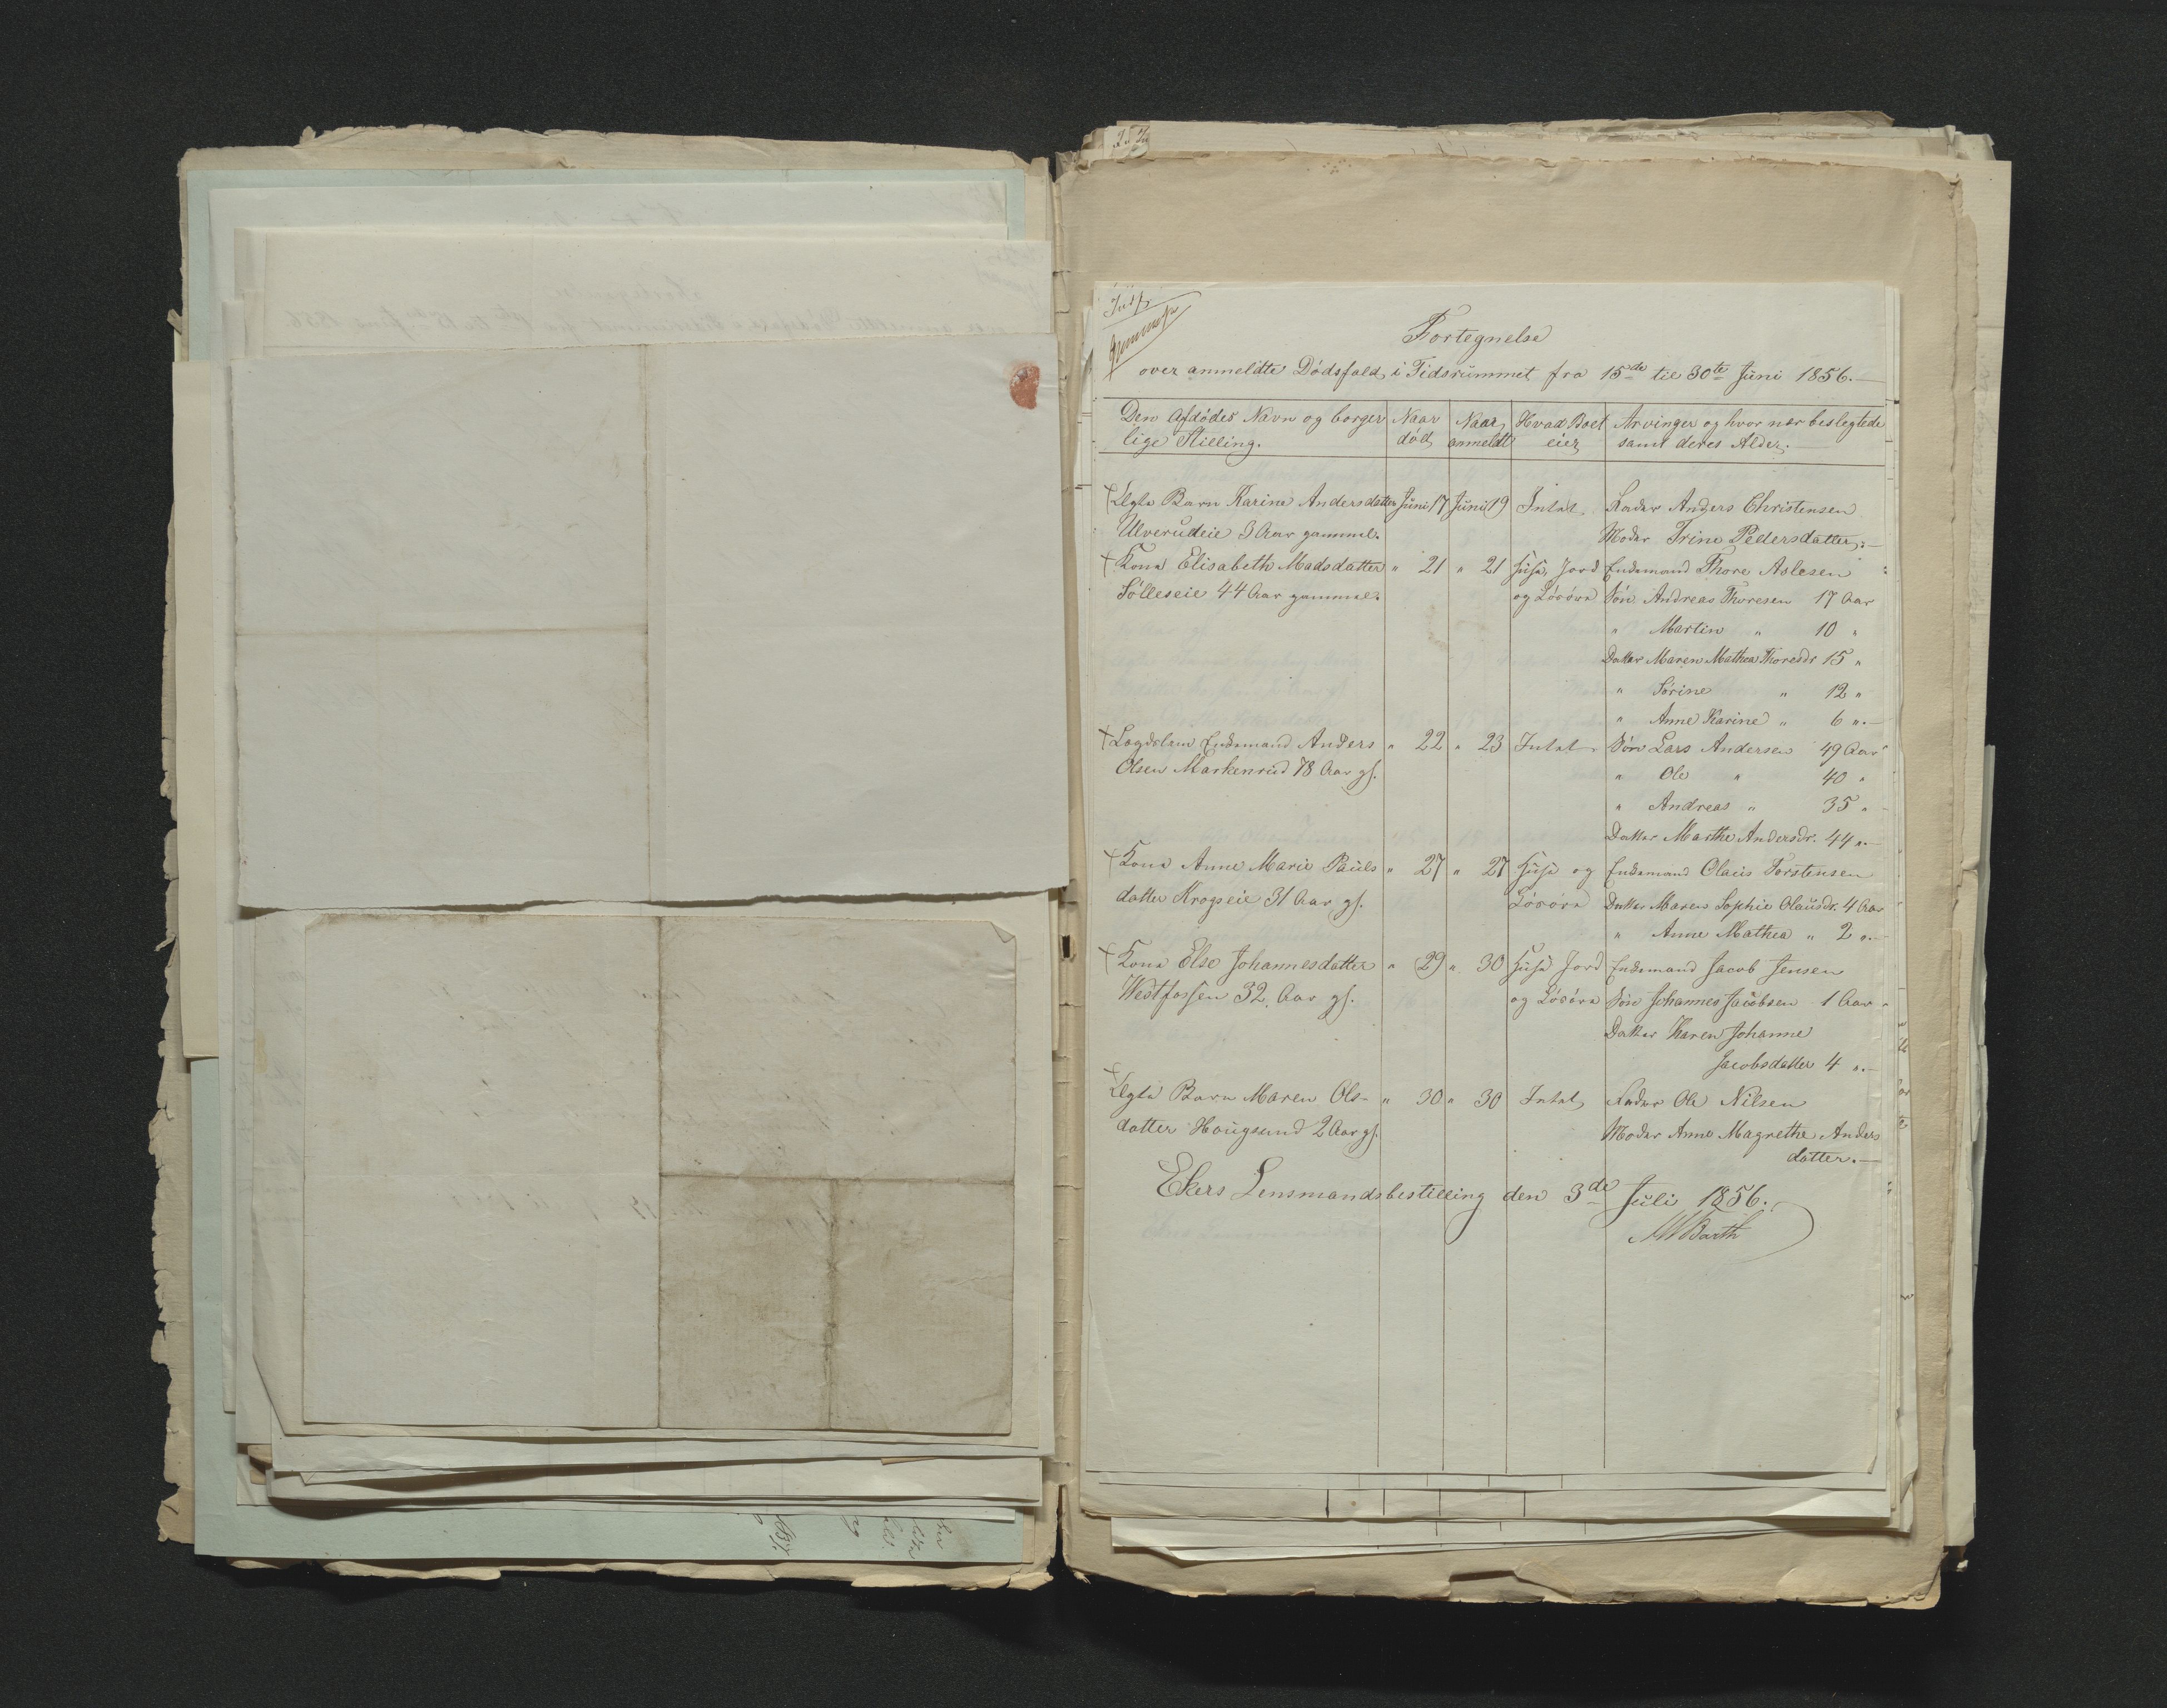 Indf.
Fortegnelse
over anmeldte Dødsfald i Tidsrummet fra 15de til 30te Juni 1856.—
Den Afdødes Navn og borger Naar Naar Hvad Boet Arvinger og hvor nær beslegtede
lige Stilling. död anmeldt eier samt deres Alder.—
Ægte Barn Karine Andersdatter Juni 17 Juni 19 Intet Fader Anders Christensen
Ulverudeie 3 Aar gammel. Moder Trine Pedersdatter.—
Kona Elisabeth Madsdatter " 21 " 21 Huse, Jord Enkemand Thore Aslesen
Sölleseie 44 Aar gammel. og Lösöre Sön Andreas Thoresen 17 Aar
" Martin " 10 "
Datter Maren Mathea Thoresdr 15 "
" Sörine " 12 "
" Anne Karine " 6 ".—
Lægdslem Enkemand Anders " 22 " 23 Intet Sön Lars Andersen 49 Aar
Olsen Markenrud 78 Aar gl. " Ole " 40 "
" Andreas " 35 "
Datter Marthe Andersdr. 44 ".—
Kona Anne Marie Pauls " 27 " 27 Huse og Enkemand Olaus Torstensen
datter Krogseie 31 Aar gl. Lösöre Datter Maren Sophie Olausdr. 4 Aar
" Anne Mathea " 2 ".—
Kona Else Johannesdatter " 29 " 30 Huse Jord Enkemand Jacob Jensen
Westfossen 32 Aar gl. og Lösöre Sön Johannes Jacobsen 1 Aar
Datter Karen Johanne
Jacobsdatter 4 ".—
Ægte Barn Maren Ols- " 30 " 30 Intet Fader Ole Nilsen
datter Hougsund 2 Aar gl. Moder Anne Magrethe Anders
datter.—
Ekers Lensmandsbestilling den 3de Juli 1856.
Barth